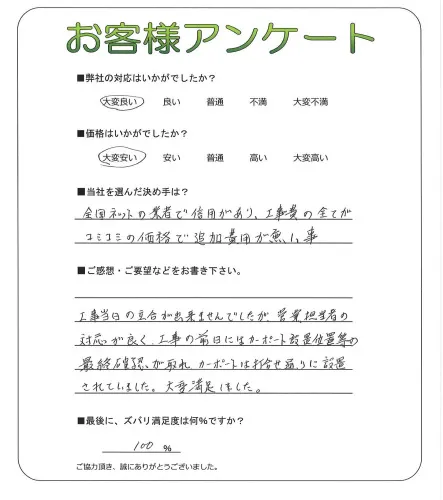 お客様アンケート
■弊社の対応はいかがでしたか?
大変良い 良い 普通 不満 大変不満
■価格はいかがでしたか?
大変安い 安い 普通 高い 大変高い
■当社を選んだ決め手は?
全国ネットの業者で信用があり、工事費の全てが
コミコミの価格で追加費用が無い事
■ご感想・ご要望などをお書き下さい。
工事当日の立合が出来ませんでしたが、営業担当者の
対応が良く、工事の前日にはカーポート設置位置等の
最終確認が取れ、カーポートは打合せ通りに設置
されていました。大変満足しました。
■最後に、ズバリ満足度は何%ですか?
100 %
ご協力頂き、誠にありがとうございました。